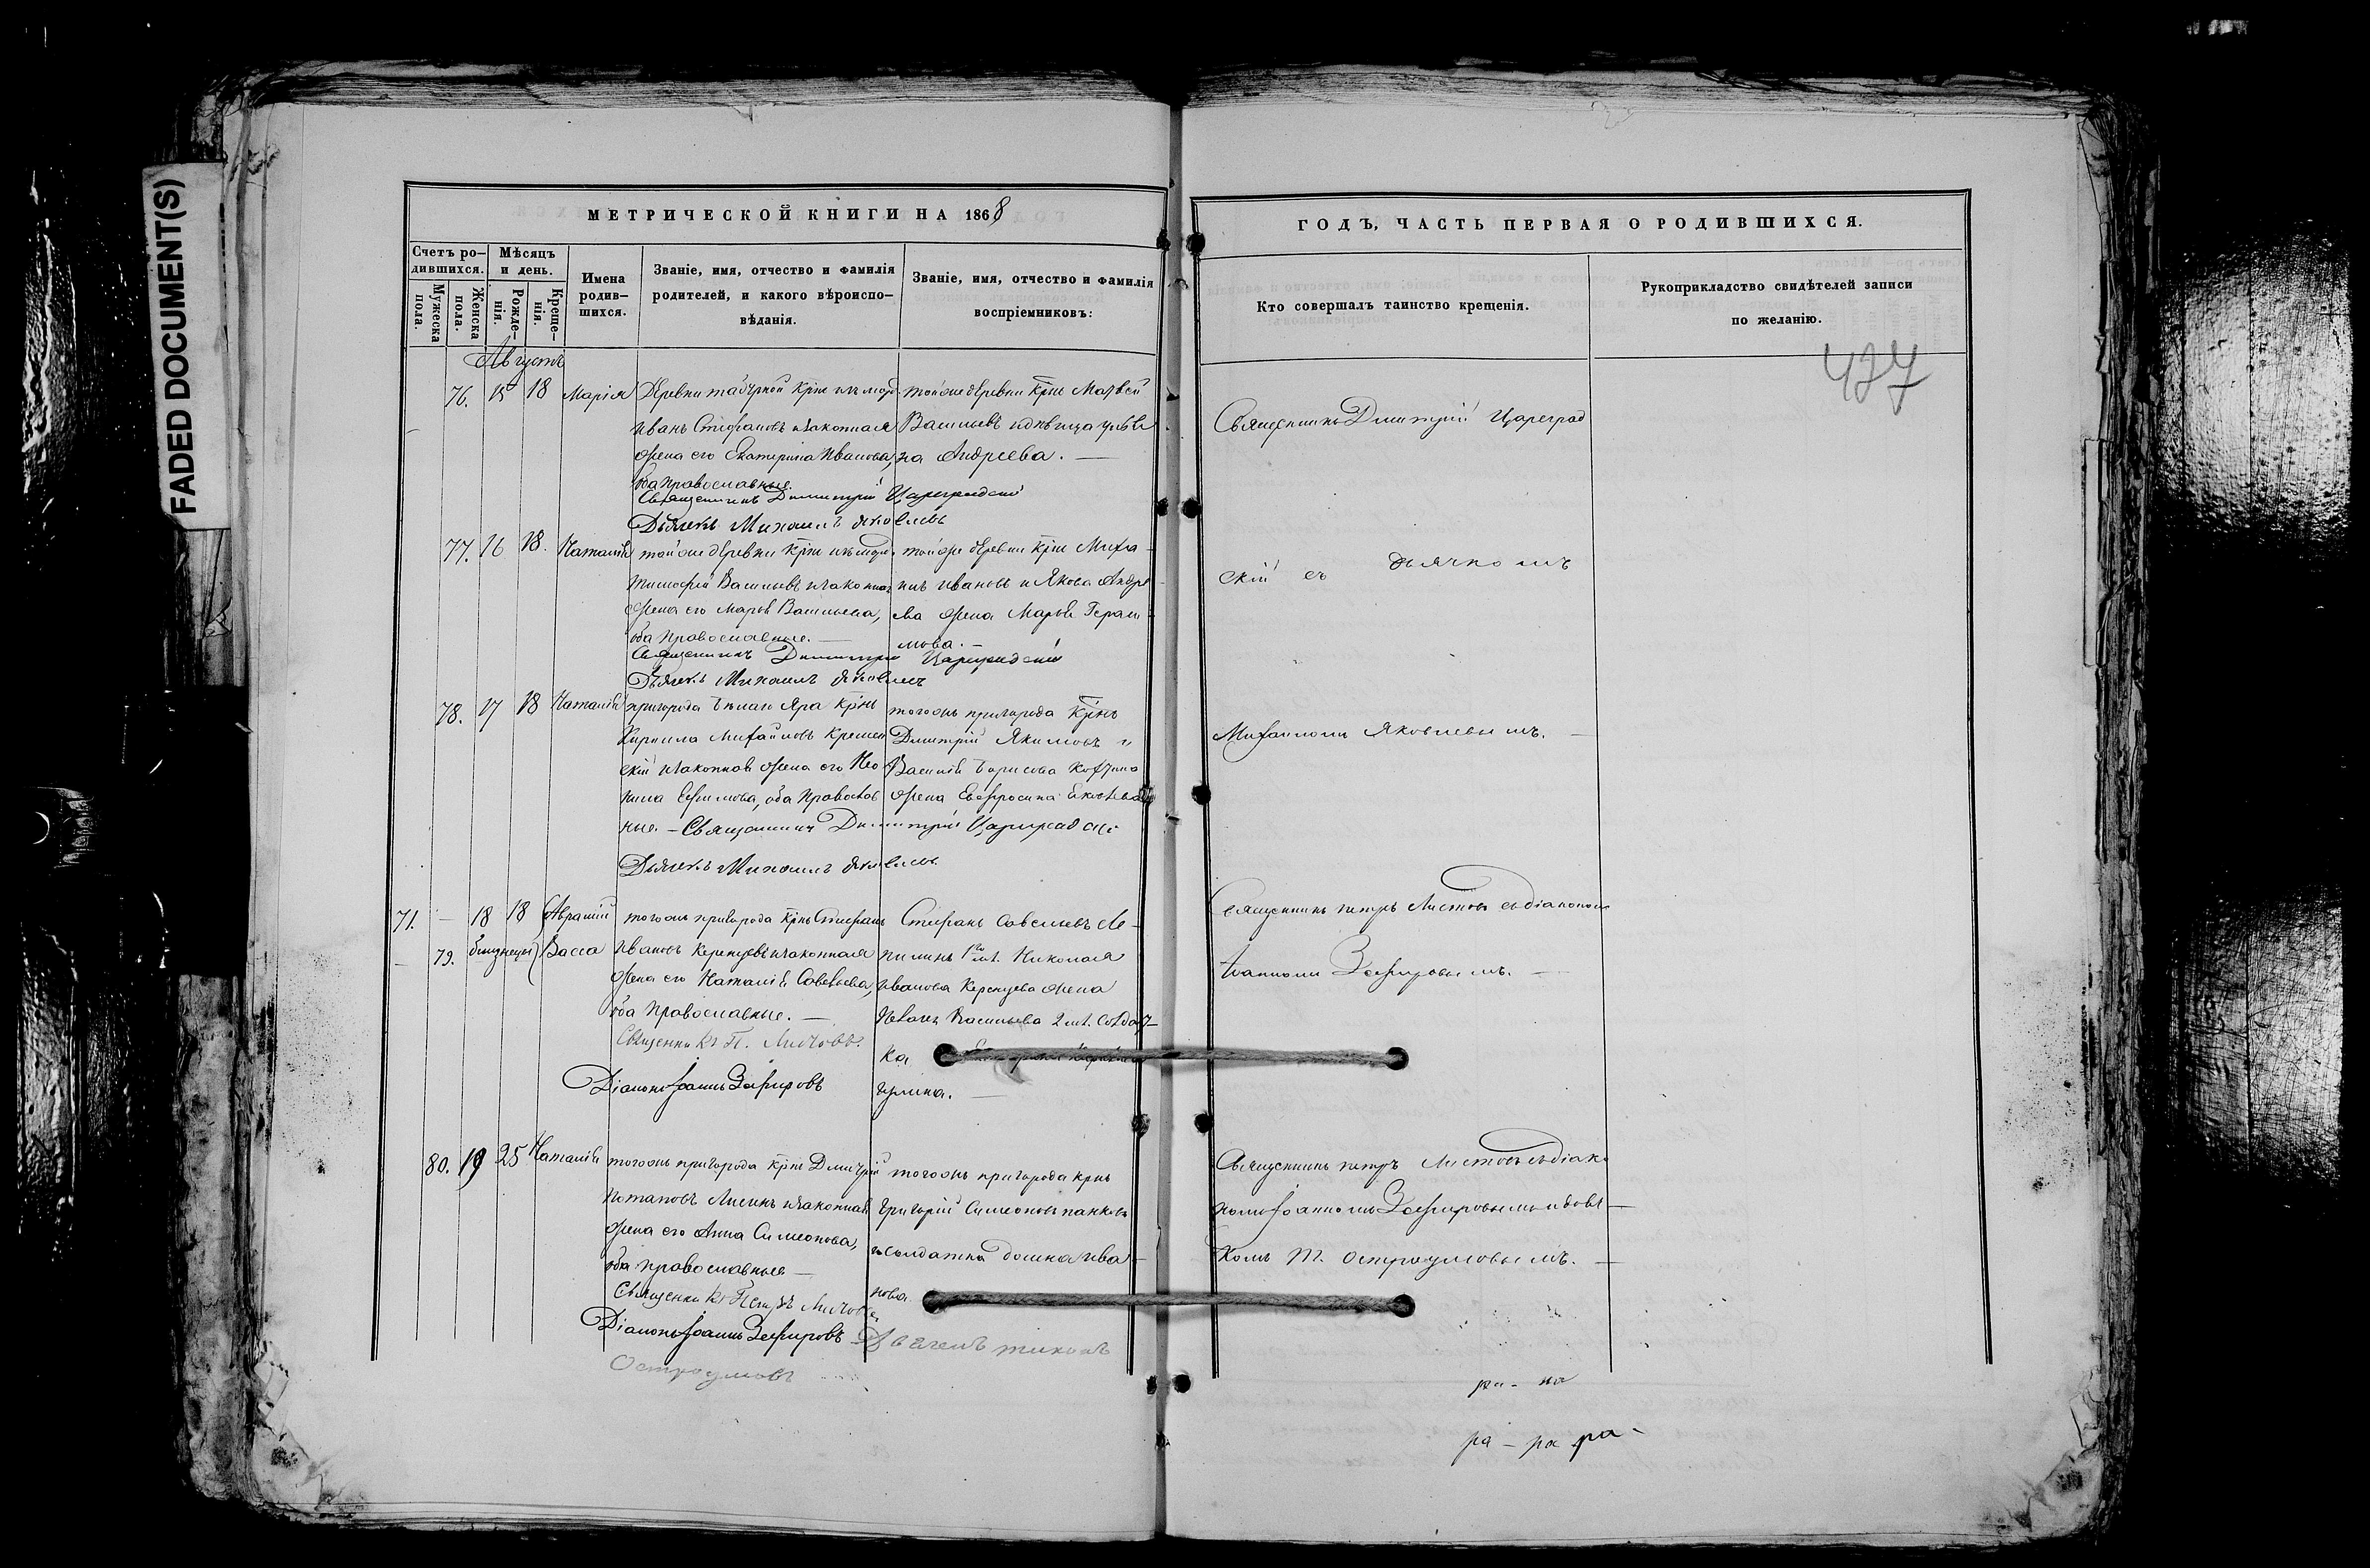 FADED DOCUMENT(S)
МЕТРИЧЕСКОЙ КНИГИ НА 1868
Счетъ ро-
дившихся.
Мужеска
пола.
Женска
пола.
Мѣсяцъ
и день.
Рожде-
нія.
Креще-
нія.
Имена
родив-
шихся.
Званіе, имя, отчество и фамилія
родителей, и какого вѣроиспо-
вѣданія.
Званіе, имя, отчество и фамилія
воспріемниковъ:
Августъ
76. 15 18 Марія
Деревни крне
Иванъ Стефановъ и законная
жена его Екатерина Иванова,
оба православные.
Священникъ Димитрій Цареградскій
Дьячекъ Михаилъ Яковлевъ
тойже деревни крне Матвей
Васильевъ и дѣвица
на Андреева. —
77. 16 18. Наталія
тойже деревни крне
Тимофей Васильевъ и законная
жена его Марѳа Васильева,
оба православные. —
Священникъ Димитрій Цареградскій
Дьячекъ Михаилъ Яковлевъ
тойже деревни крне Миха-
илъ Ивановъ и Якова Андре
ева жена Марѳа Гераси
мова. —
78. 17 18 Наталія
пригорода Бѣлаго Яра крнъ
Кирилла Михайловъ
скій и законная жена его
Ефимова, оба православ
ные. — Священникъ Димитрій Цареградскій
Дьячекъ Михаилъ Яковлевъ
тогожъ пригорода крнъ
Дмитрій Якимовъ и
Василія Борисова
жена Евфросина Яковлева
71. — 18 18 Аврамій
79. близнецы Васса
тогожъ пригорода крнъ Стефанъ
Ивановъ Керенцевъ и законная
жена его Наталія Савельева,
оба православные. —
Священникъ П. Листовъ.
Діаконъ Іоаннъ Зефировъ
Стефанъ Савельевъ Ле-
пилинъ 1го мл. Николая
Иванова Керенцева жена
Пелагея Васильева 2 мл. солдат-
ка
гулина. —
80. 19 25 Наталія
тогожъ пригорода крнъ Дмитрій
Потаповъ Лисинъ и законная
жена его Анна Симеонова,
оба православные —
Священникъ Петръ Листовъ
Діаконъ Іоаннъ Зефировъ
Дьячекъ Тихонъ
Остроумовъ
тогожъ пригорода крнъ
Григорій Симеоновъ Панковъ
и солдатка Домна Ива-
нова
ГОДЪ, ЧАСТЬ ПЕРВАЯ О РОДИВШИХСЯ.
Кто совершалъ таинство крещенія.
Рукоприкладство свидѣтелей записи
по желанію.
Священникъ Димитрій Цареград
скій съ дьячкомъ
Михаиломъ Яковлевымъ. —
Священникъ Петръ Листовъ съ діакономъ
Іоанномъ Зефировымъ. —
Священникъ Петръ Листовъ съ діако
номъ Іоанномъ Зефировымъ и дьяч-
комъ Т. Остроумовымъ. —
ра - на
ра - ра ра -